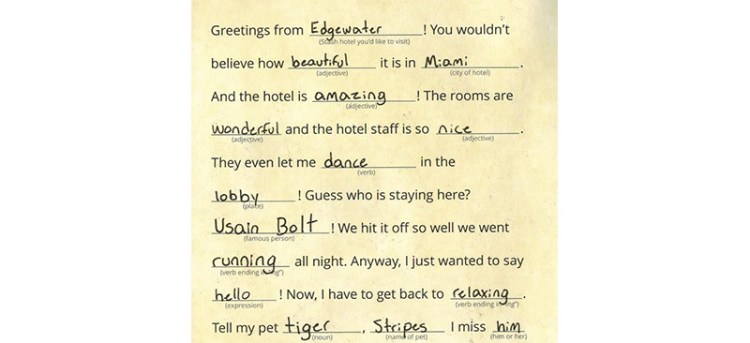 Greetings from Edgewater! You wouldn't
(Stash hotel you'd like to visit)
believe how beautiful it is in Miami.
(adjective) (city of hotel)
And the hotel is amazing! The rooms are
(adjective)
wonderful and the hotel staff is so nice.
(adjective) (adjective)
They even let me dance in the
(verb)
lobby! Guess who is staying here?
(place)
Usain Bolt! We hit it off so well we went
(famous person)
running all night. Anyway, I just wanted to say
(verb ending in "ing")
hello! Now, I have to get back to relaxing.
(expression) (verb ending in "ing")
Tell my pet tiger, Stripes I miss him
(noun) (name of pet) (him or her)